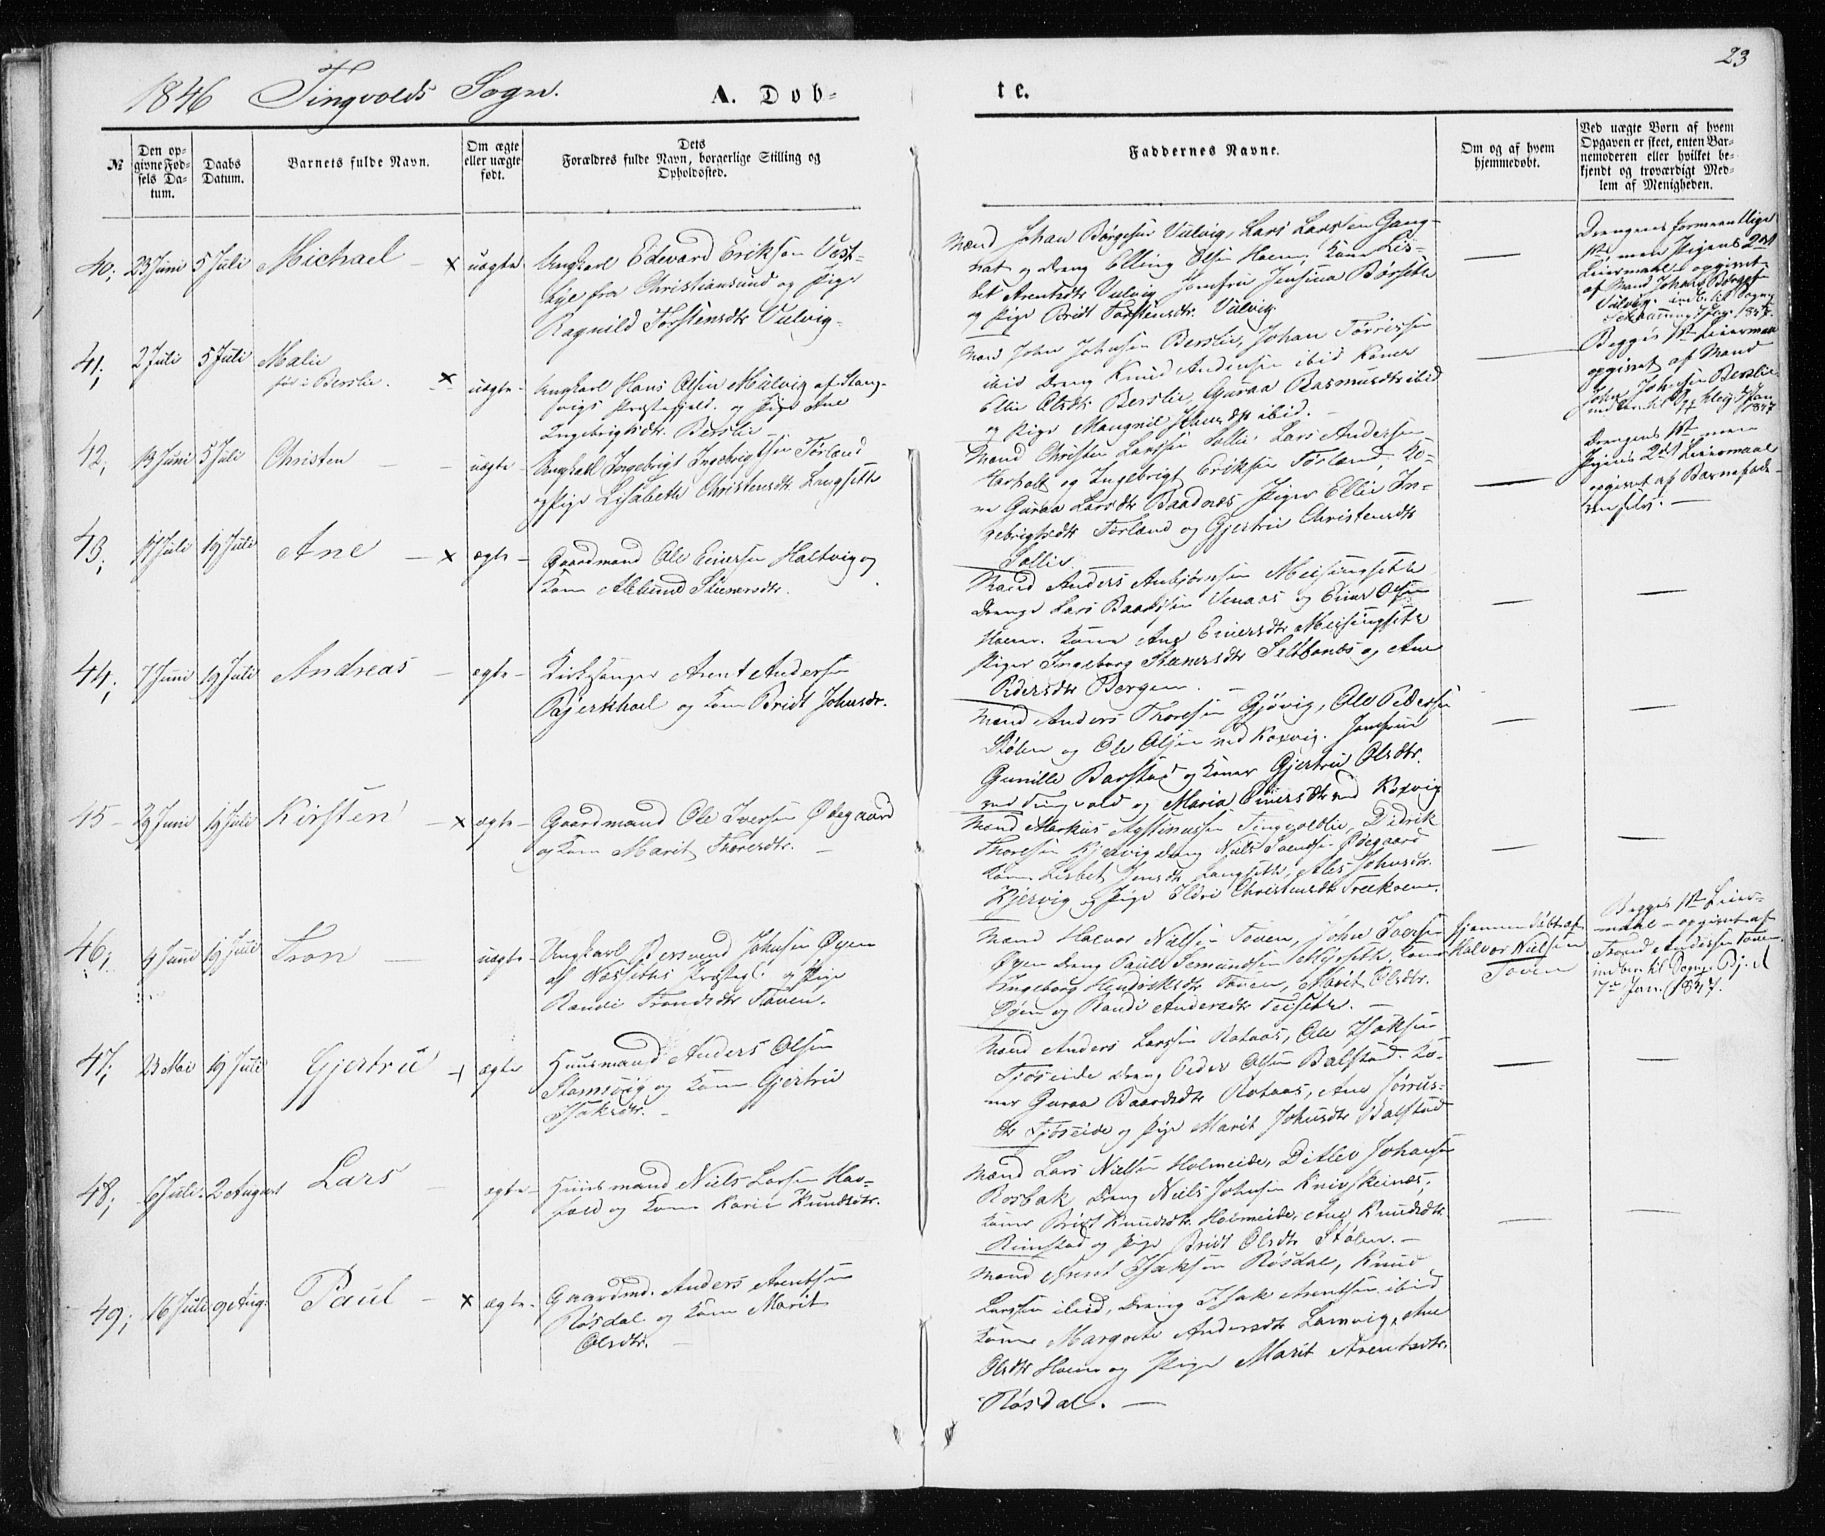 23
1846 Tingvolds Sogn.
A. Dob-
te.
№
Den op-
givne Fød-
sels Da-
tum.
Daabs
Datum.
Barnets fulde Navn.
Om ægte
eller uægte
født.
Dets
Forældres fulde Navn, borgerlige Stilling og
Opholdssted.
Faddernes Navne.
Om og af hvem
hjemmedøbt.
Ved uægte Børn af hvem
Opgaven er skeet, enten Bar-
nemoderen eller hvilket be-
kjendt og troværdigt Med-
lem af Menigheden.
40; 23 Juni 5 Juli Michael — x uægte
Ungkarl Edevard Eriksen Vest-
bye fra Christiansund og Pige
Ragnild Torstensdtr Vulvig.
Mænd Johan Børgesen Vulvig, Lars Larsen Gang-
og Dreng Elling Olsen Hoem, Kone Lis-
bet Arentsdtr Vulvig Jomfru Jensina Børseth
og Pige Bridt Torstensdtr Vulvig.
—
Drengens formeentlige
1ste, men Pigens 2det
Leiermaal opgivet
af Mand Johan Børgesen
Vulvig.
41; 2 Juli 5 Juli Malie x uægte
Berslie.
Ungkarl Hans Olsen Mulvig af Stang-
vigs Præstegjeld. og Pige Ane
Ingebrigtsdtr Berslie
Mand John Johnsen Berslie, Johan
ibid Dreng Knud Andersen ibid Koner
Ellie Olsdtr Berslie, Guraa Rasmusdtr ibid
og Pige Mangnil Hansdtr ibid.
—
Begges 1ste Leiermaal
opgivet af Mand
John Johnsen Berslie
1847
42, 13 Juni 5 Juli Christen — uægte
Ungkarl Ingebrigt Ingebrigtsen Torland
og Pige Lisabeth Christensdtr Langseth
Mænd Christen Larssen Sollie, Lars Andersen
Harholt og Ingebrigt Eriksen Torland, Ko-
ne Guraa Larsdtr Baadnæs Piger Ellie In-
gebrigtsdtr Torland og Gjertru Christensdtr
Sollie
—
Drengens 1ste men
Pigens 2det Leiermaal
opgivet af Barnefade-
ren selv. —
43; 17 Juli 19 Juli Ane — x ægte
Gaardmand Ole Einersen Haltvig og
Kone Steenersdtr.
Mand Anders Anbjørnsen Meisingseth
Drenge Lars Baardsen Venaas og Einer Olsen
Hoem. Kone Ane Einersdtr Meisingseth
Piger Ingeborg Steenersdtr og Ane
Pedersdtr Bergem. —
—
—
44; 7 Juni 19 Juli Andreas — ægte
Kirkesanger Arent Andersen
Bjerkhoel og Kone Bridt Johnsdtr.
Mænd Anders Thoresen Gjøvig, Ole Pedersen
Stølen og Ole Olsen ved Koxvig. Jomfrue
Gunille Barstad og Koner Gjertru Olsdtr.
ved Tingvold og Maria Einersdtr ved Koxvig
—
—
45 — 29 Juni 19 Juli Kirsten — x ægte
Gaardmand Ole Iversen Ødegaard
og Kone Marit Toresdtr. —
Mænd Markus Agstinussen Tingvoldlie, Didrik
Thoresen Kjervig, Dreng Niels Ødegaard
Kone Lisbet Jensdtr Langseth, Ales Johnsdtr.
Kjervig og Pige Eldri Christensdtr
—
—
46; 4 Juni 19 Juli Tron — uægte
Ungkarl Bersvend Johnsen Øyen
af Nessets Præstegj. og Pige
Randi Trondsdtr Toven.
Mænd Halvor Nielsen Toven, John Iversen
Øyen Dreng Paul Semundsen Kone
Ingeborg Hendriksdtr Toven, Marit Olsdtr.
Øyen og Randi Andersdtr
hjemmedøbt af
Halvor Nielsen
Toven
Begges 1ste Leier-
maal — opgivet af
Trond Andersen Toven
7de Jan. 1847.
47; 23 Mai 19 Juli Gjertru ægte
Huusmand Anders Olsen
Stamsvig og Kone Gjertru
Isaksdtr. —
Mænd Anders Larssen Rotaas, Ole Isaksen
Tjøseide Dreng Peder Olsen Balstad. Ko-
ner Guraa Baardsdtr Rotaas, Ane
Tjøseide og Pige Marit Johnsdtr Balstad
—
—
48; 6 Juli 2 August Lars — ægte
Huusmand Niels Larsen
og Kone Karie Knudsdtr.
Mænd Lars Nielsen Holmeide, Ditlev Johansen
Rosbak, Dreng Niels Johnsen Knivskinæs,
Koner Bridt Knudsdtr. Holmeide, Ane Knudsdtr.
Rimstad og Pige Bridt Olsdtr Stølen. —
—
—
49; 16 Juli 9 Aug: Paul — x ægte
Gaardmd. Anders Arentsen
Røsdal og Kone Marit
Olsdtr. —
Mænd Arent Isaksen Røsdal, Knud
Larssen ibid, Dreng Isak Arentsen ibid
Koner Margrete Andersdtr Lamvig, Ane
Olsdtr Hoem og Pige Marit Arentsdtr.
Røsdal. —
—